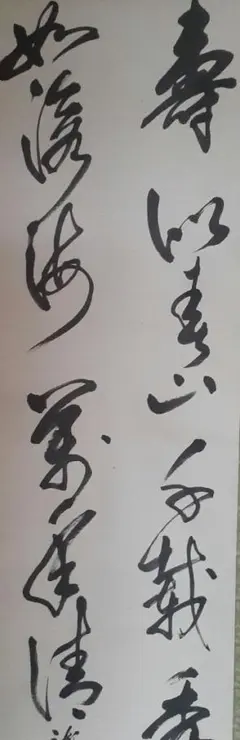 壽似春山千載秀
如滄海萬年清